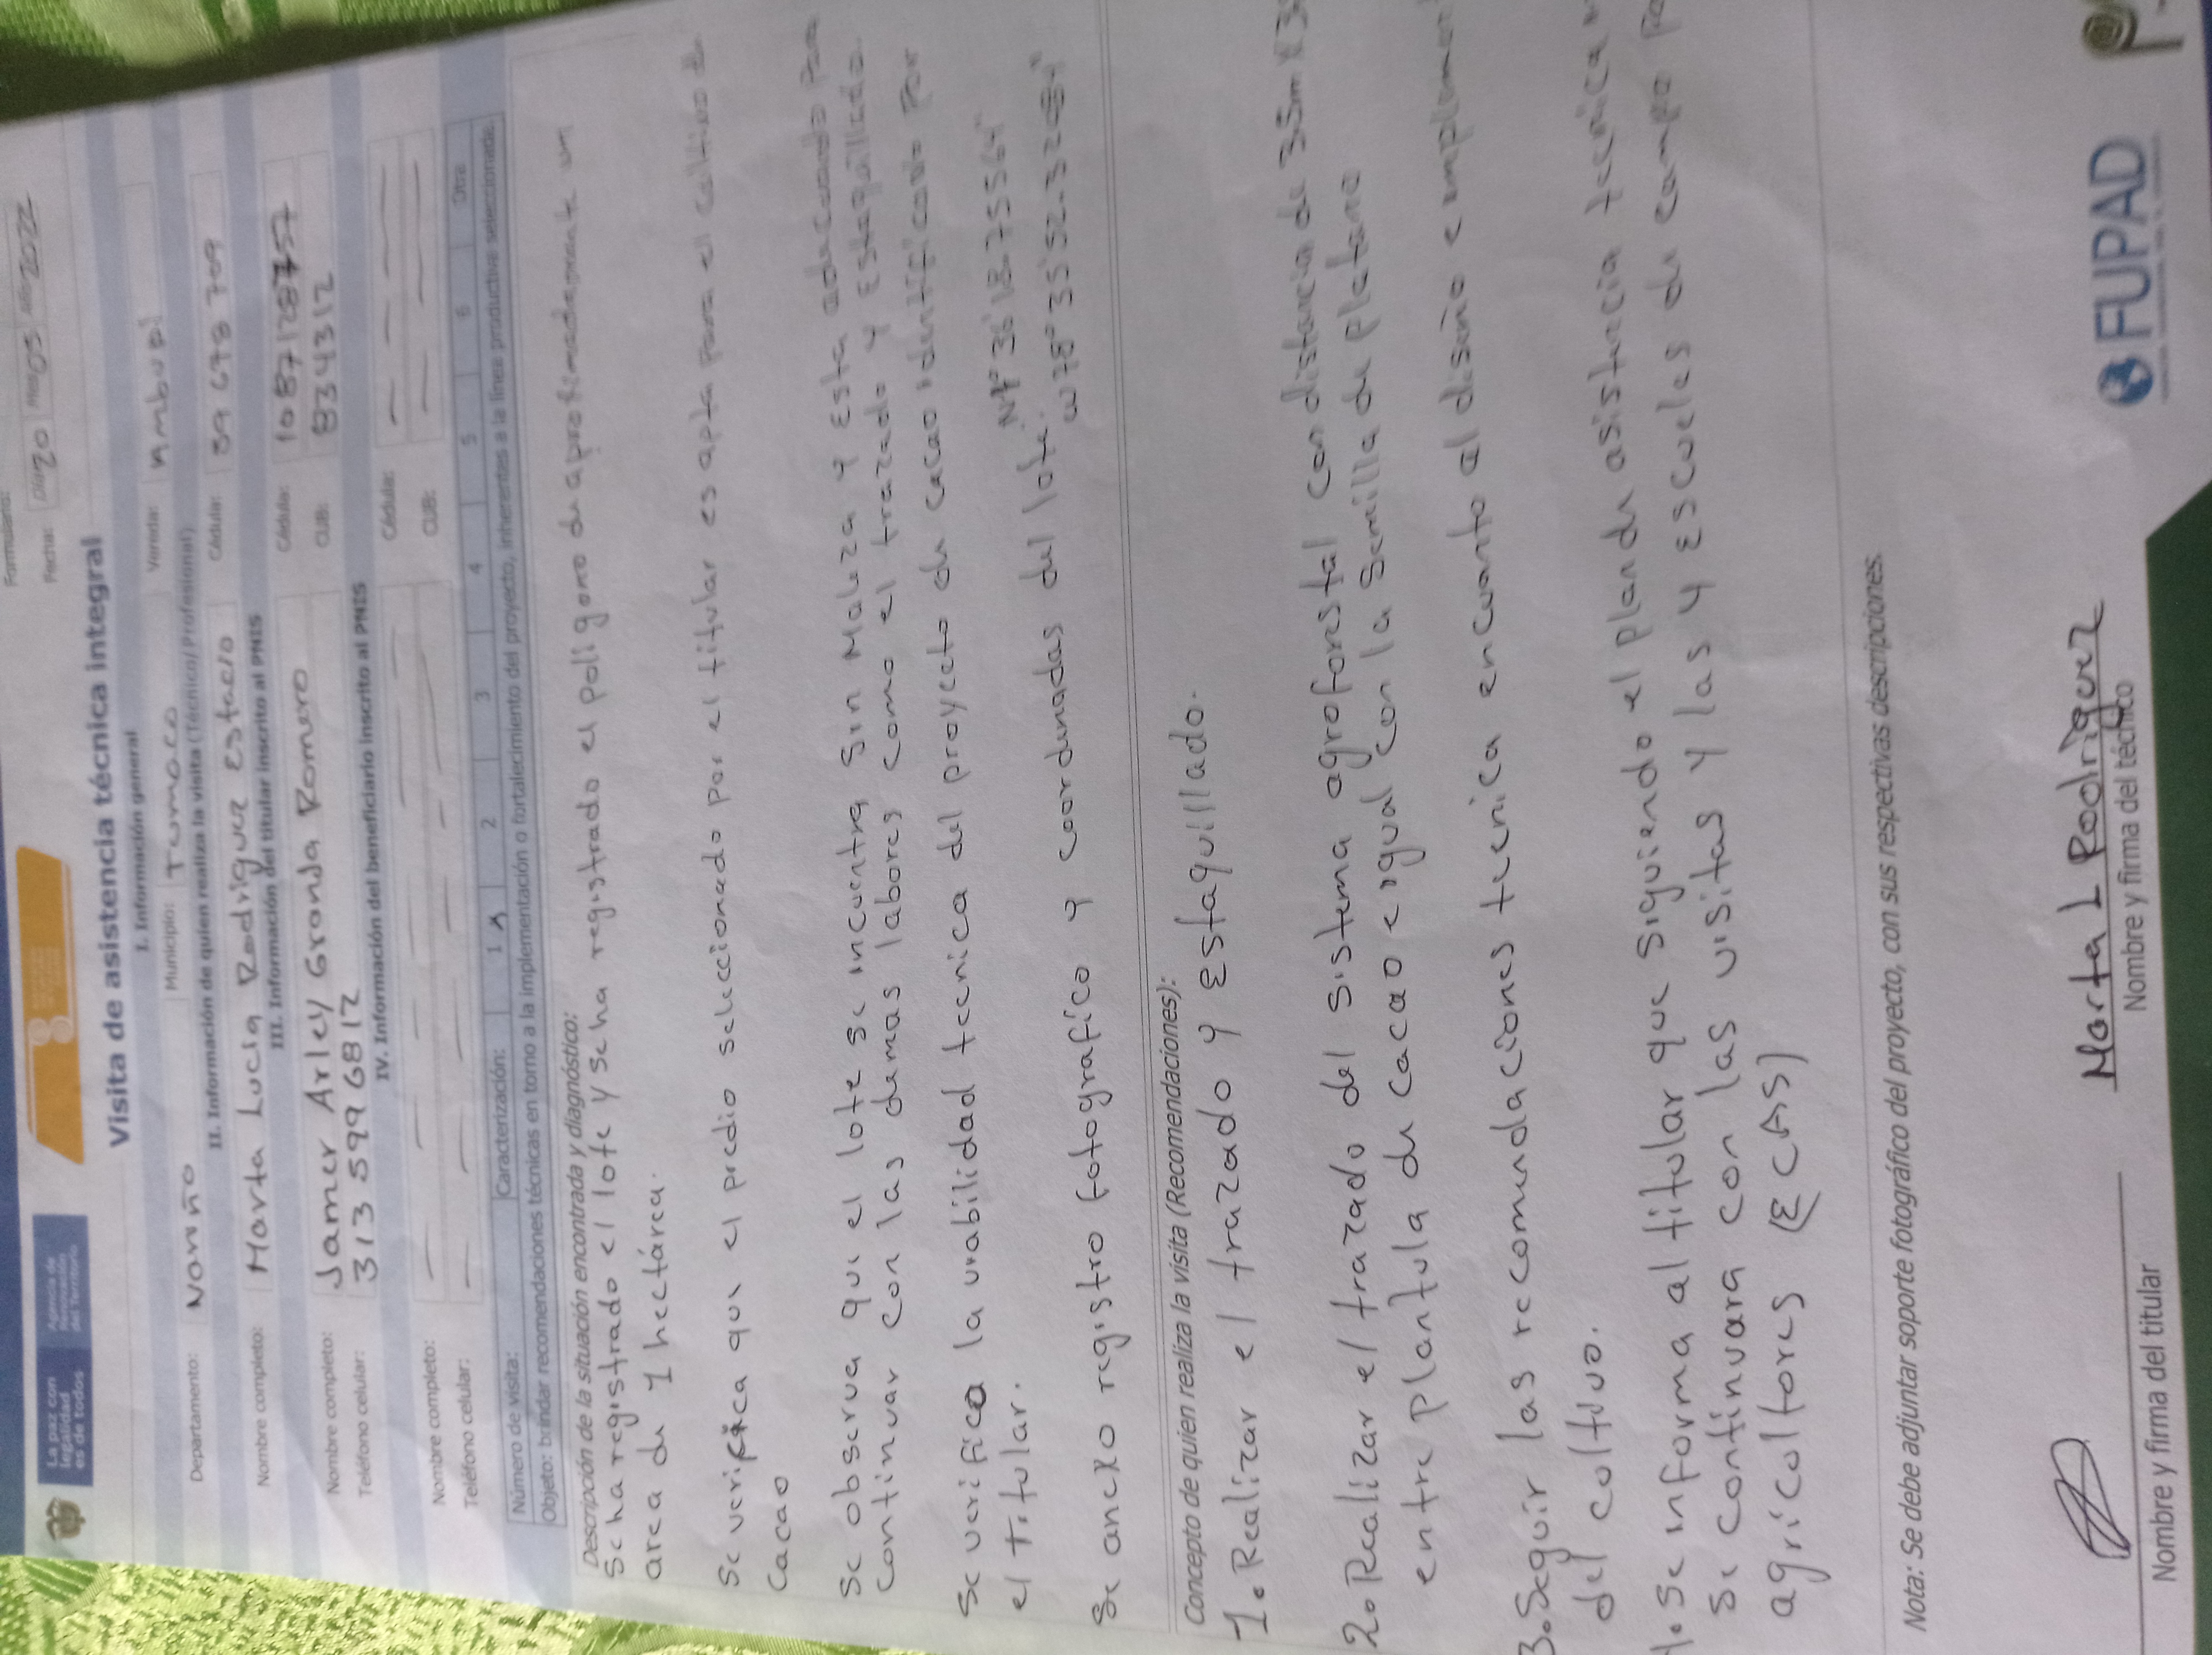 La paz con
legalidad
es de todos
Agencia de
Renovación
del Territorio
Formulario:
Fecha: Día 20 Mes 05 Año 2022
Visita de asistencia técnica integral
I. Información general
Departamento: Nariño Municipio: Tumaco Vereda: Ambupi
II. Información de quien realiza la visita (Técnico/Profesional)
Nombre completo: Marta Lucia Rodriguez Estacio Cédula: 59 678 709
III. Información del titular inscrito al PNIS
Nombre completo: Jamer Arley Granda Romero Cédula: 1087128757
Teléfono celular: 313 599 6812 CUB: 834312
IV. Información del beneficiario inscrito al PNIS
Nombre completo: Cédula:
Teléfono celular: CUB:
Número de visita: Caracterización: 1 x 2 3 4 5 6 Otra
Objeto: brindar recomendaciones técnicas en torno a la implementación o fortalecimiento del proyecto, inherentes a la línea productiva seleccionada.
Descripción de la situación encontrada y diagnóstico:
Se ha registrado el lote y se ha registrado el poligono de aprofimadamente un
area de 1 hectárea.
Se verifica que el predio seleccionado por el titular es apta para el cultivo de
Cacao
Se observa que el lote se incuentra sin Maleza y Esta adecuado para
Continuar con las demas labores como el trazado y Estaquillado
Se verifico la viabilidad tecnica del proyecto de cacao identificado por
el titular.
Se anexo registro fotografico y coordenadas del lote. N1° 36' 18.75564"
W78° 35' 52.32
Concepto de quien realiza la visita (Recomendaciones):
1. Realizar el trazado y Estaquillado.
2. Realizar el trazado del sistema agroforestal con distancia de 35m x 3
entre plantula de cacao e igual con la Semilla de platano
3. Seguir las recomendaciones tecnica encuanto al diseño e implemen
del cultivo.
se informa al titular que siguiendo el plan de asistencia tecnica
se continuara con las visitas y las 4 Escuelas de campo pa
agricultores (ECAS)
Nota: Se debe adjuntar soporte fotográfico del proyecto, con sus respectivas descripciones.
Marta L Rodriguez
Nombre y firma del titular Nombre y firma del técnico
FUPAD